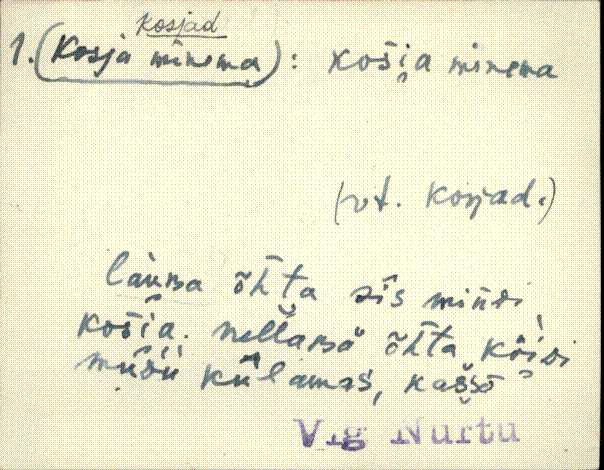 Kosjad
1. (Kosja minema): košja minema
(vt. kosjad.)
laùba õhta sis miǹdi
košja. nellaba õhta käidi
mùdu külamas, kašsõ
Vig Nurtu